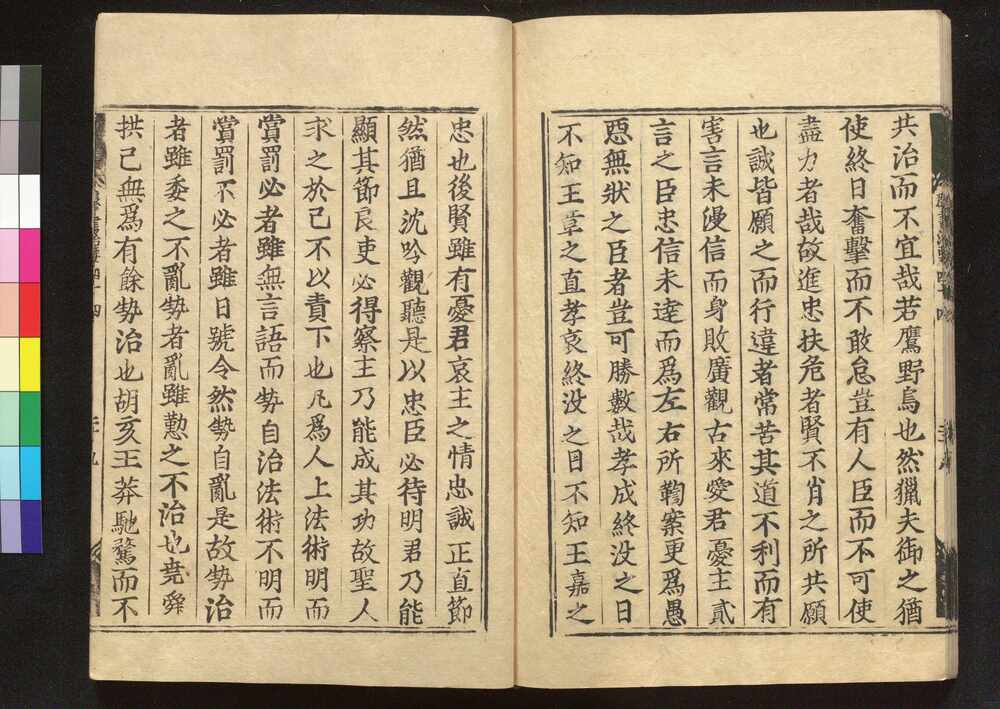 共治而不宜哉若鷹野鳥也然獵夫御之猶
使終日奮擊而不敢怠豈有人臣而不可使
盡力者哉故進忠扶危者賢不肖之所共願
也誠皆願之而行違者常苦其道不利而有
害言未得信而身敗廣觀古來愛君憂主貳
言之臣忠信未達而爲左右所鞫案更爲愚
惡無狀之臣者豈可勝數哉孝成終沒之日
不知王章之直孝哀終沒之日不知王嘉之
忠也後賢雖有憂君哀主之情忠誠正直節
然猶且沈吟觀聽是以忠臣必待明君乃能
顯其節良吏必得察主乃能成其功故聖人
求之於己不以責下也凡爲人上法術明而
賞罰必者雖無言語而勢自治法術不明而
賞罰不必者雖日號令然勢自亂是故勢治
者雖委之不亂勢者亂雖懃之不治也堯舜
拱己無爲有餘勢治也胡亥王莽馳騖而不